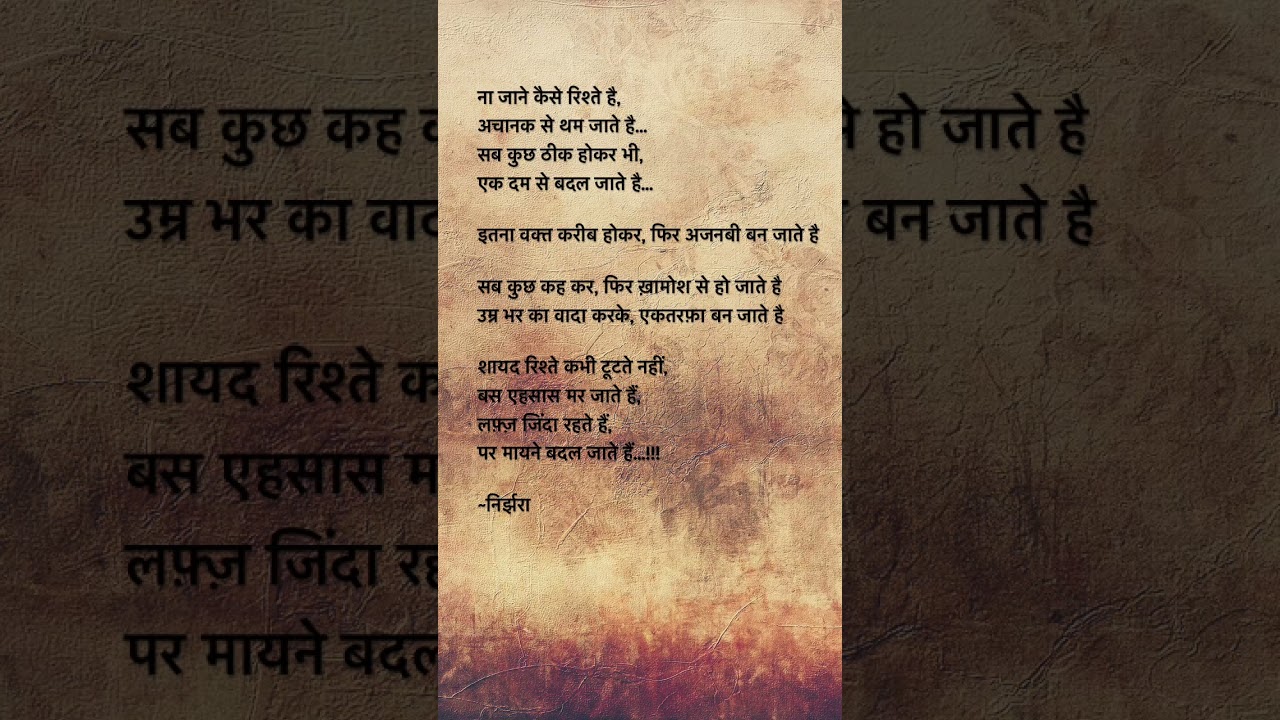 ना जाने कैसे रिश्ते है,
अचानक से थम जाते है...
सब कुछ ठीक होकर भी,
एक दम से बदल जाते है...
इतना वक्त करीब होकर, फिर अजनबी बन जाते है
सब कुछ कह कर, फिर ख़ामोश से हो जाते है
उम्र भर का वादा करके, एकतरफ़ा बन जाते है
शायद रिश्ते कभी टूटते नहीं,
बस एहसास मर जाते हैं,
लफ़्ज़ जिंदा रहते हैं,
पर मायने बदल जाते हैं...!!!
~निर्झरा